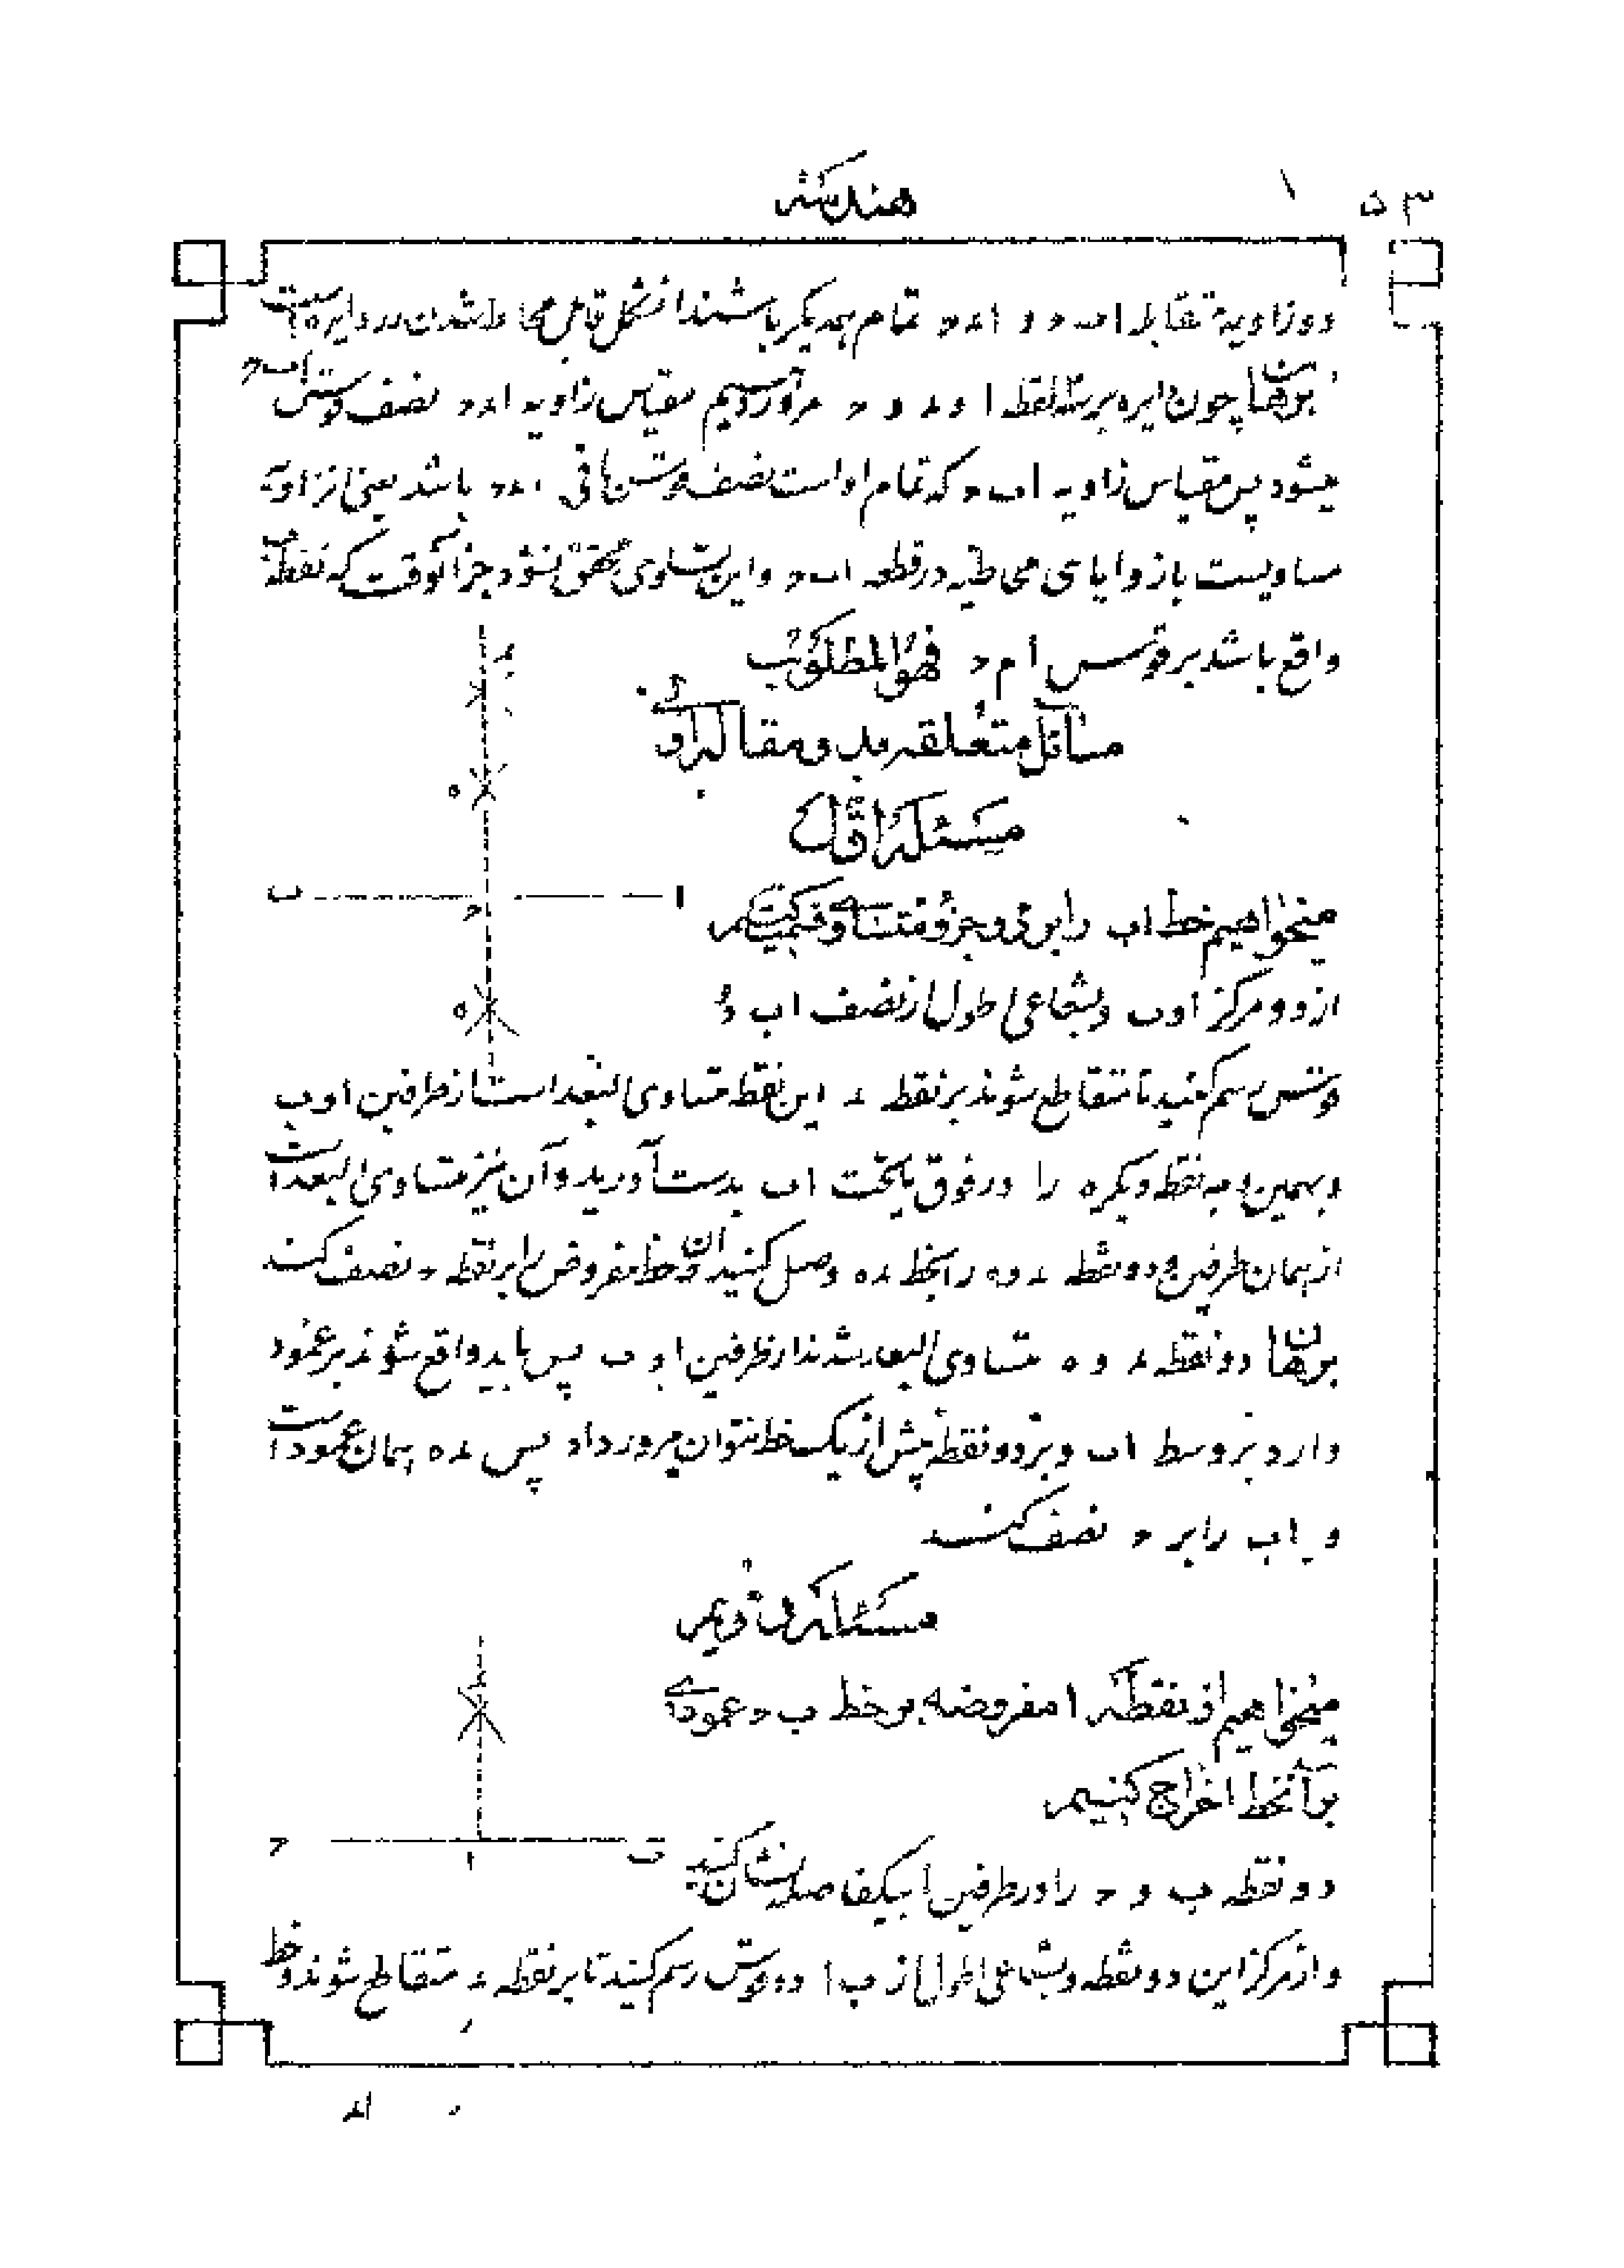 ۵۳
هندسه
دو زاویه متقابله اب‍ح و اءح تمام یکدیگر باشند آن شکل قابل محاط شدن در دایره است
برهان چون دایره بر سه نقطه ا و ء و ح مرور دهیم مقیاس زاویه اءح نصف قوس اب‍ح
میشود پس مقیاس زاویه اب‍ح که تمام او است نصف قوس باقی اءح باشد یعنی این زاویه
مساویست با زوایای محاطیه در قطعه اب‍ح و این تساوی محقق نشود جز آنوقت که نقطه ب
واقع باشد بر قوس ا م ح فهو المطلوب
مسائل متعلقه بدو مقاله اولی
مسئله اول
ء
ه
ب
ا
ح
ه
میخواهیم خط اب را بدو جزو متساوی قسمت کنیم
از دو مرکز ا و ب و بشعاعی اطول از نصف اب دو
قوس رسم کنید تا متقاطع شوند بر نقطه ء این نقطه متساوی البعد است از طرفین ا و ب
و بهمین وجه نقطه دیگر ه را در فوق یا تحت اب بدست آورید و آن نیز متساوی البعد است
از همان طرفین و دو نقطه ء و ه را بخط ءه وصل کنید آن خط مفروض را بر نقطه ح نصف کند
برهان دو نقطه ء و ه متساوی البعد شدند از طرفین ا و ب پس باید واقع شوند بر عمود
وارد بر وسط اب و بر دو نقطه بیش از یک خط نتوان مرور داد پس ءه همان عمود است
و اب را بر ح نصف کند
مسئله دویم
میخواهیم از نقطه ا مفروضه بر خط ب‍ح عمودی
بر آنخط اخراج کنیم
ء
ح
ا
ب
دو نقطه ب و ح را در طرفین ا بیکفاصله نشان کنید
و از مرکز این دو نقطه و بشعاعی اطول از ب‍ا دو قوس رسم کنید تا بر نقطه ء متقاطع شوند و خط
اء